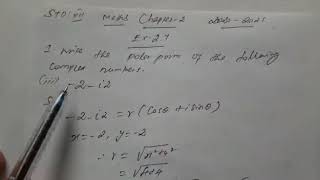 STD: XII Maths Chapter-2 2020-2021
Ex-2.7
I write the polar form of the following
complex numbers.
(iii) -2-i2
S
-2-i2 = r(cosθ+isinθ)
x=-2, y=-2
∴ r = √x²+y²
= √4+4